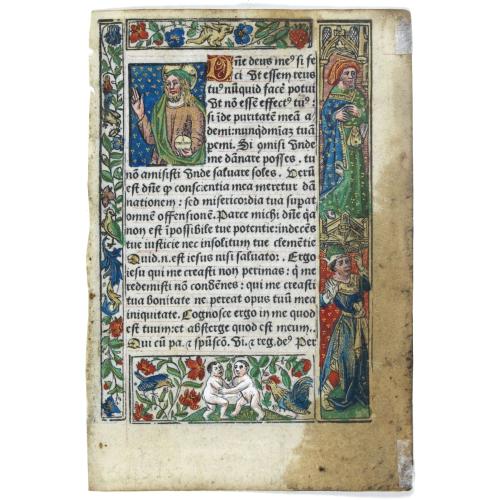 Dñe deus meꝰ si fe
ci vt essem reus
tuꝰ nũquid face potui
vt nõ essẽ effectꝰ tuꝰ:
si ĩde puritatẽ meã a
demi: nunqd miaȝ tuã
pemi. Si qmisi vnde
me dãnare posses. tu
nõ amisisti vnde saluare soles. Verũ
est dñe qꝫ conscientia mea meretur dã
nationem: sed misericordia tua supat
omnẽ offensionẽ. Parce michi dñe qa
non est ĩpossibile tue potentie: indecẽs
tue iusticie nec insolitum tue clemẽtie
Quid.n. est iesus nisi saluator. Ergo
iesu qui me creasti non perimas: q̃ me
redemisti nõ condẽnes: qui me creasti
tua bonitate ne pereat opus tuũ mea
iniquitate. Cognosce ergo in me quod
est tuum: et absterge quod est meum.
Qui cũ pa. ⁊ spũscõ. Vi. ⁊ reg. deꝰ Per